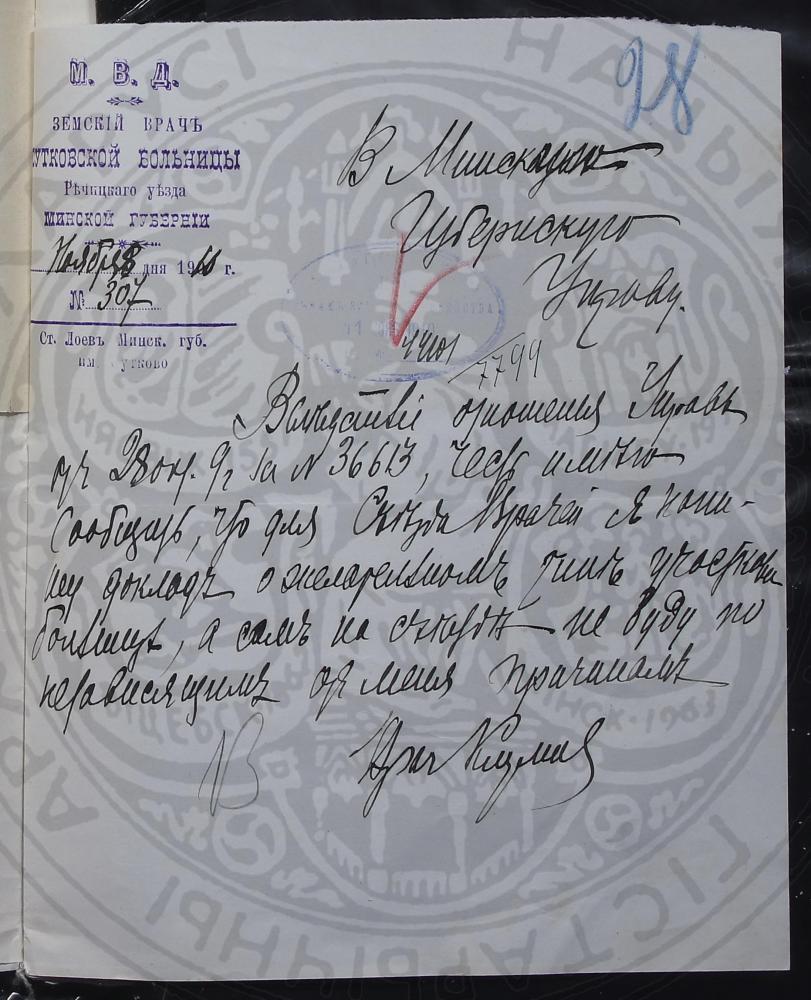 28
М. В. Д.
ЗЕМСКІЙ ВРАЧЪ
УТКОВСКОЙ БОЛЬНИЦЫ
Рѣчицкаго уѣзда
МИНСКОЙ ГУБЕРНІИ
Ноября 8 дня 1910 г.
№ 307
Ст. Лоевъ Минск. губ.
им. утково
В Минскую
Губернскую
Управу.
7799
Вслѣдствіе отношенія Управы
от 28 окт. за № 36613, честь имѣю
сообщить, что для Съѣзда Врачей я напи-
шу докладъ о желательномъ типѣ участковой
больницы, а самъ на съѣздѣ не буду по
независящимъ отъ меня причинамъ
Врач